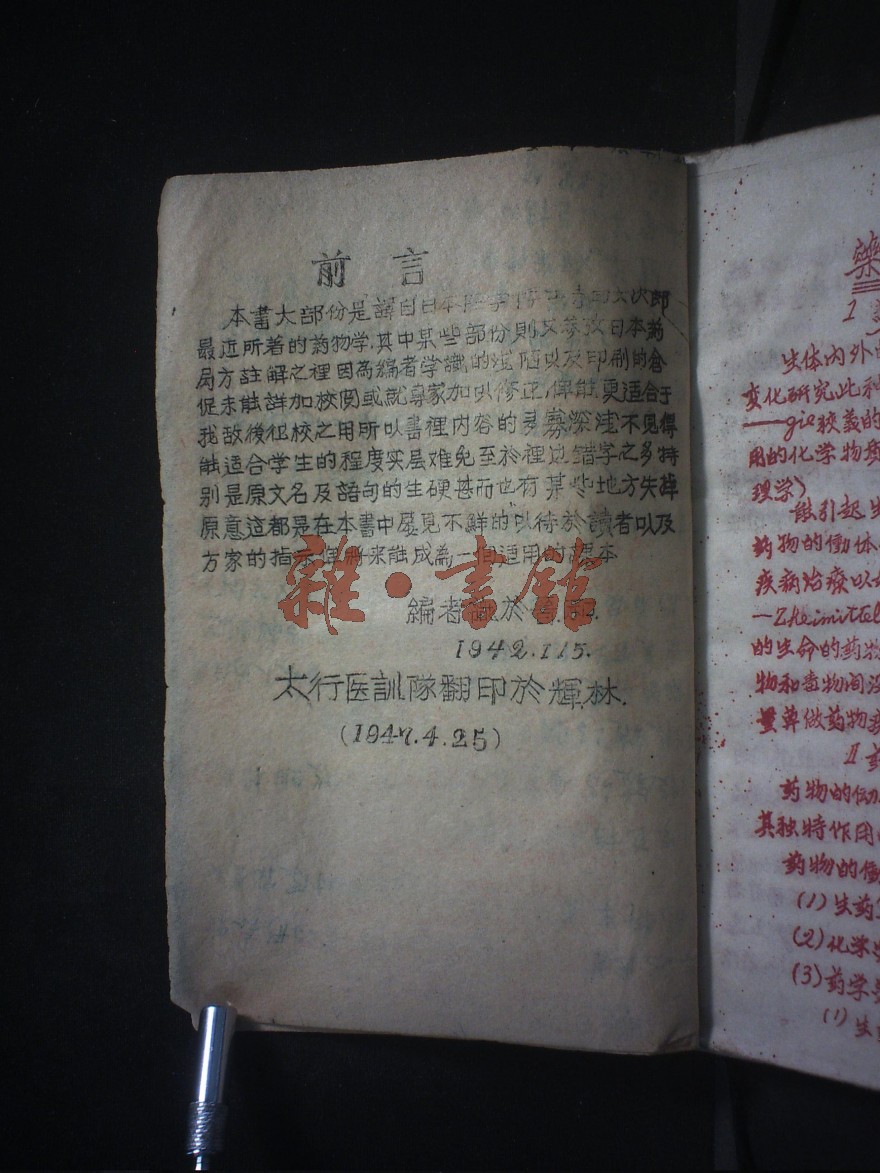 前言
本書大部份是譯自日本医学博士
最近所著的药物学,其中某些部份則又参攷日本药
局方註解之裡因為編者学識的浅陋以及印制的倉
促未能詳加校閱或就專家加以修正,俾能更适合于
我敌後征校之用所以書裡内容的多寡深浅不见得
能适合学生的程度实屬难免至於裡边錯字之多特
別是原文名及語句的生硬甚而也有某些地方失掉
原意這都是在本書中屡見不鮮的以待於讀者以及
方家的指示俾將来能成為一個适用的課本
雜·書館
編者識於
1942.1.15.
太行医訓隊翻印於輝林.
(1947.4.25)
藥
1
生体内外
变化研究此和
——gie狹義的
用的化学物質
理学)
能引起生
药物的働体
疾病治療以
—Zheimittel
的生命的药物
物和毒物间没
量算做药物
Ⅱ
药物的
其独特作用
药物的働
(1)生药
(2)化学
(3)药学
(1)生